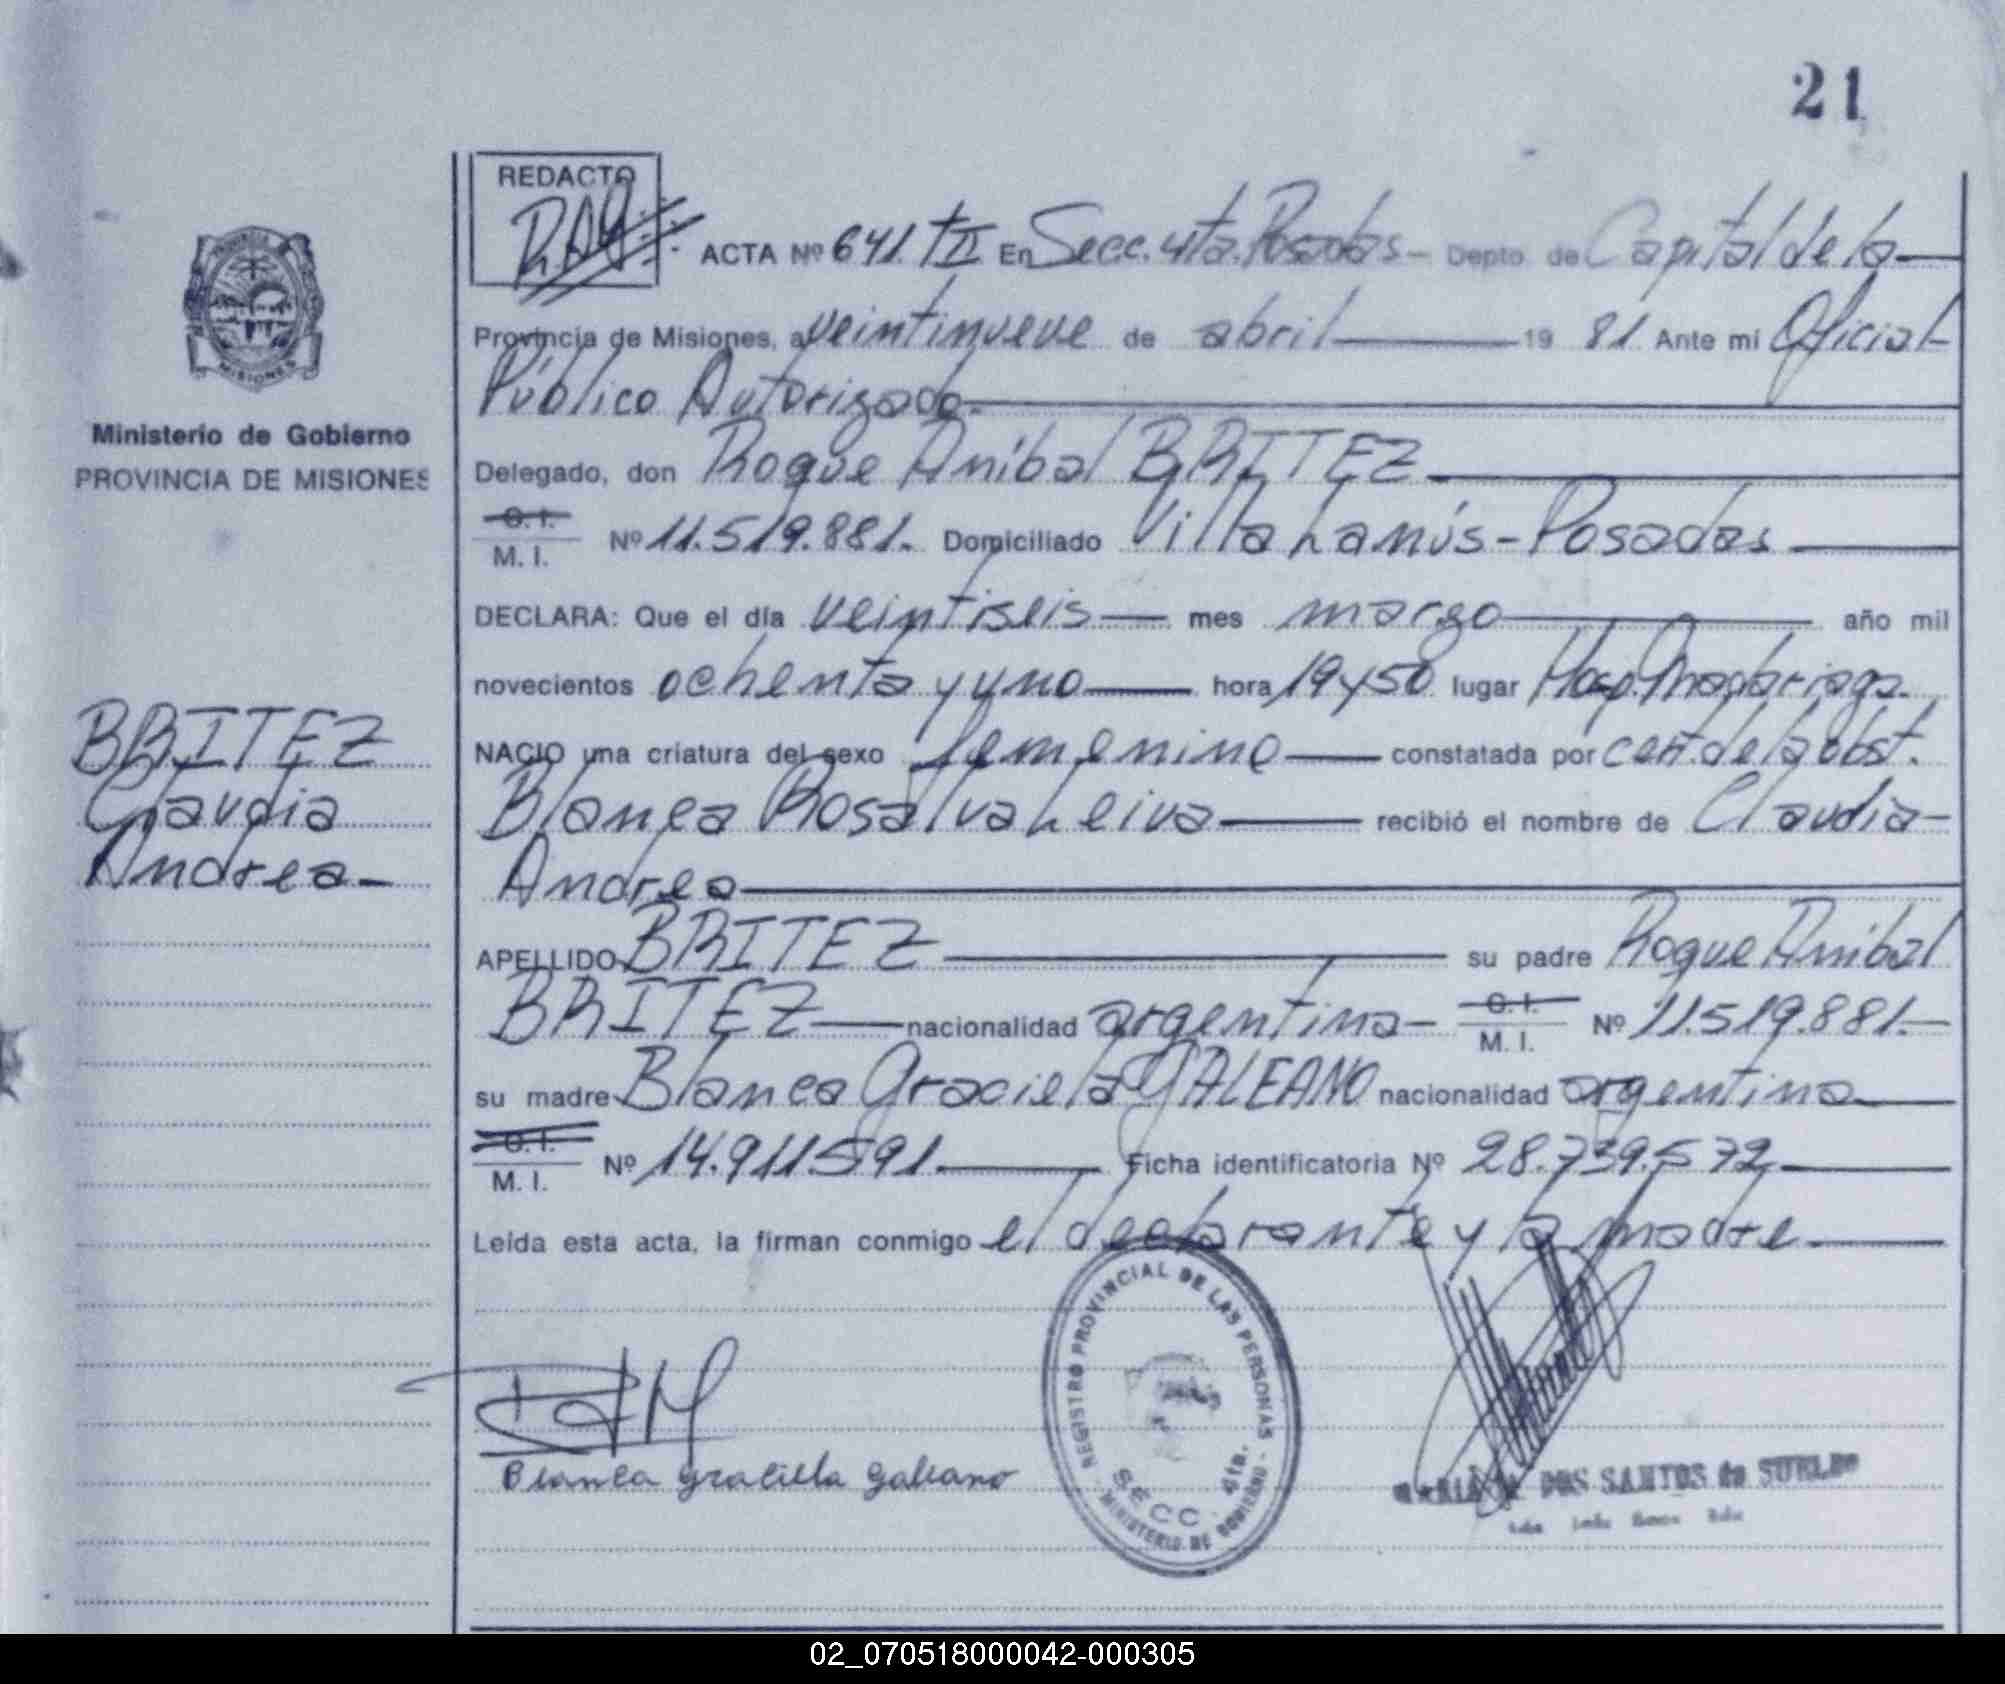 21
REDACTO
ACTA Nº 641. T II En Secc. 4ta. Posadas - Depto. de Capital de la
Provincia de Misiones, a veintinueve de abril 19 81 Ante mí Oficial
Público Autorizado.
Delegado, don Roque Anibal BRITEZ
C. I.
M. I. Nº 11.519.881. Domiciliado Villa Lanús - Posadas
DECLARA: Que el día veintiseis mes marzo año mil
novecientos ochenta y uno hora 19 y 50 lugar Hosp. Madariaga.
NACIO una criatura del sexo femenino constatada por cert. de la obst.
Blanca Rosalva Leiva recibió el nombre de Claudia
Andrea
APELLIDO BRITEZ su padre Roque Anibal
BRITEZ nacionalidad argentina - C. I.
M. I. Nº 11.519.881.-
su madre Blanca Graciela GALEANO nacionalidad argentina
C. I.
M. I. Nº 14.911.591. Ficha identificatoria Nº 28.739.572
Leída esta acta, la firman conmigo el declarante y la madre.
Blanca Graciela Galeano
REGISTRO PROVINCIAL DE LAS PERSONAS
SECC. 4ta.
MINISTERIO DE GOBIERNO
DOS SANTOS de SUELDO
PROVINCIA
MISIONES
Ministerio de Gobierno
PROVINCIA DE MISIONES
BRITEZ
Claudia
Andrea -
02_070518000042-000305